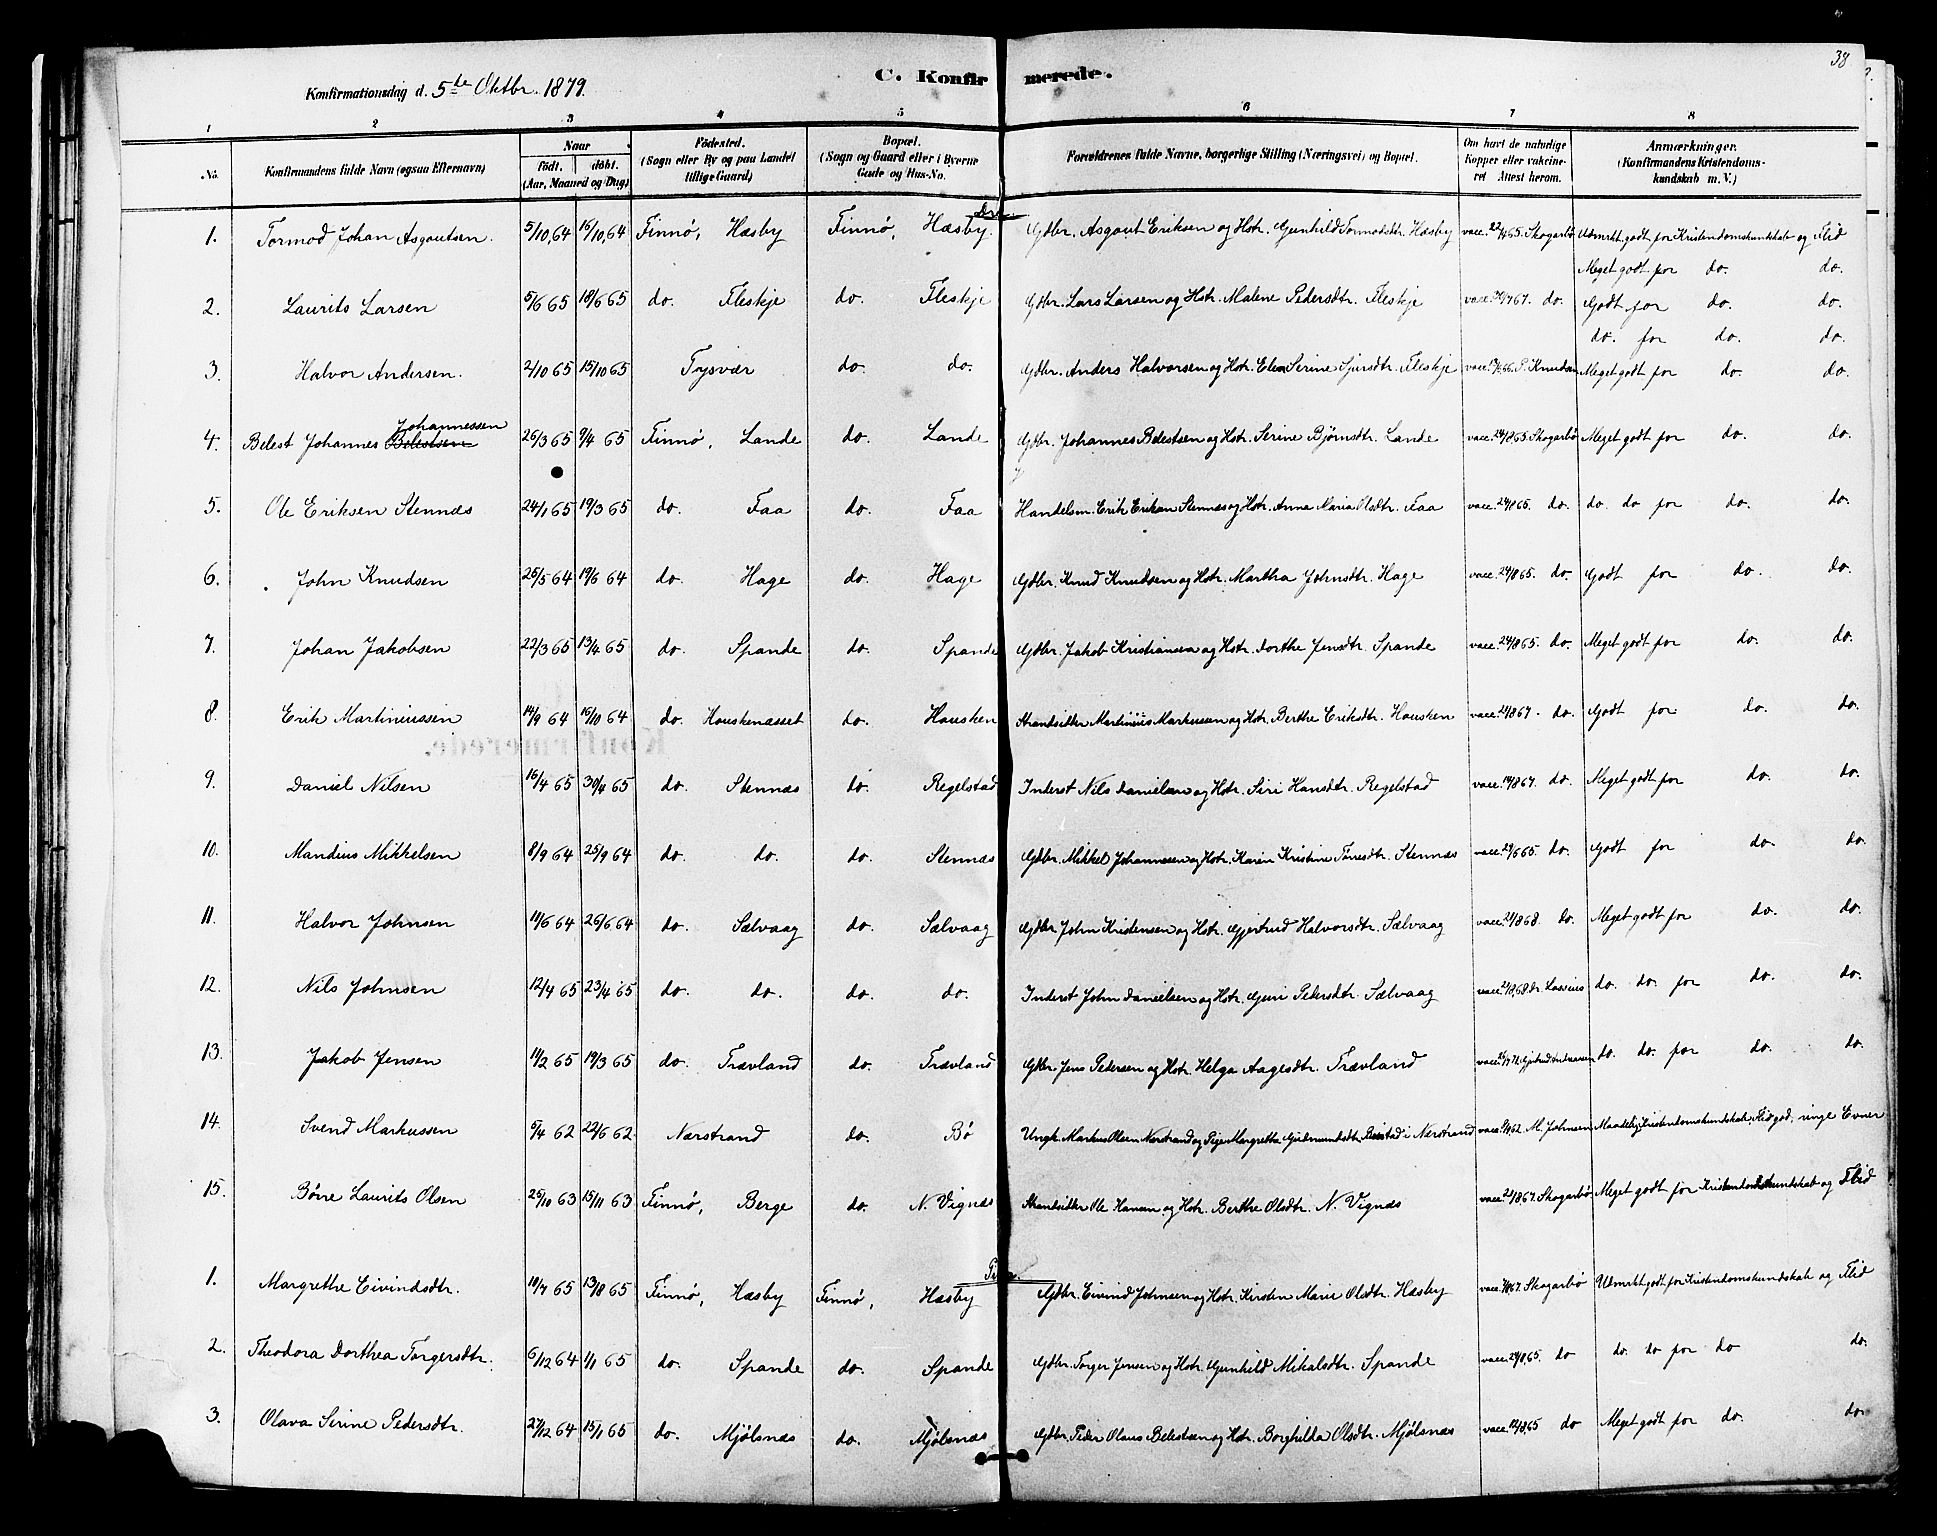 38
Konfirmationsdag d. 5te Oktbr. 1879.
C. Konfirmerede.
1 2 3 4 5 6 7 8
No. Konfirmandens fulde Navn (ogsaa Efternavn) Naar født. døbt. (Aar, Maaned og Dag) Födested. (Sogn eller By og paa Landet tillige Gaard) Bopæl. (Sogn og Gaard eller i Byerne Gade og Hus-No. Forældrenes fulde Navne, borgerlige Stilling (Næringsvei) og Bopæl. Om havt de naturlige Kopper eller vaccineret Attest herom. Anmærkninger. (Konfirmandens Kristendomskundskab m. V.)
1. Tormod Johan Asgautsen. 5/10,64 16/10,64 Finnø, Hæsby Finnø, Hæsby. Gdbr. Asgaut Eriksen og Hstr. Gunhild Tormodsdtr. Hæsby vacc. 65. Skogarbø Udmrkt. godt for Kristendomskundskab og Flid
Meget godt for do. do.
2. Laurits Larsen 5/6 65 18/6 65 do. Fleskje do. Fleskje Gdbr. Lars Larsen og Hstr. Malene Pedersdtr. Fleskje vacc. 67. do. Godt for do. do.
do. for do. do.
3. Halvor Andersen. 2/10 65 15/10 65 Tysvær do. do. Gdbr. Anders Halvorsen og Hstr. Elen Serine Sjursdtr. Fleskje vacc. 66. P. Knudsen Meget godt for do. do.
4. Belest Johannes Belestsen Johannessen 26/3 65 9/4 65 Finnø, Lande do. Lande Gdbr. Johannes Belestsen og Hstr. Serine Bjørnsdtr. Lande vacc. 24/8 65. Skogarbø Meget godt for do. do.
5. Ole Eriksen Stennæs 24/1 65 19/3 65 do. Faa do. Faa Handelsm. Erik Eriksen Stennæs og Hstr. Anna Maria Olsdtr. Faa vacc. 24/8 65. do. do. do for do. do.
6. John Knudsen 25/5 64 19/6 64 do. Hage do. Hage Gdbr. Knud Knudsen og Hstr. Martha Johnsdtr. Hage vacc. 24/8 65. do. Godt for do. do.
7. Johan Jakobsen 22/3 65 13/4 65 do. Spande do. Spande Gdbr. Jakob Kristiansen og Hstr. Dorthe Jensdtr. Spande vacc. 24/8 65. do. Meget godt for do. do.
8. Erik Martiniussen 14/9 64 16/10 64 do. Houskenæsset do. Housken Strandsidder Martinius Markussen og Hstr. Berthe Eriksdtr. Housken vacc. 21/8 67. do. Godt for do. do.
9. Daniel Nilsen 16/4 65 30/4 65 do. Stennæs do. Regelstad Inderst Nils Danielsen og Hstr. Siri Hansdtr. Regelstad vacc. 67. do. Meget godt for do. do.
10. Mandius Mikkelsen 8/9 64 25/9 64 do. do. do. Stennæs Gdbr. Mikkel Johannessen og Hstr. Karen Kristine Tørresdtr. Stennæs vacc. 29/6 65. do. Godt for do. do.
11. Halvor Johnsen 11/6 64 26/6 64 do. Sælvaag do. Sælvaag Gdbr John Kristensen og Hstr. Gjertrud Halvorsdtr. Sælvaag vacc. 21/8 68. do. Meget godt for do. do.
12. Nils Johnsen 12/4 65 23/4 65 do. do. do. do. Inderst John Danielsen og Hstr. Guri Pedersdtr. Sælvaag vacc. 68. Dr. Lassius do. do. for do. do.
13. Jakob Jensen 11/2 65 19/3 65 do. Trævland do. Trævland Gdbr. Jens Pedersen og Hstr. Helga Aagesdtr. Trævland vacc. Gjertrud Andreassen do. do. for do. do.
14. Svend Markussen 6/4 62 22/6 62. Nærstrand do. Bø Ungk. Markus Olsen Nærstrand og Pige Margretta Gudmundsdtr. i Nærstrand vacc. 62. M. Johnsen Maadelig Kristendomskundskab, Flid god, ringe Evner
15. Børre Laurits Olsen 25/10 63 15/11 63 Finnø, Berge do. N. Vignæs Strandsidder Ole Hansen og Hstr. Berthe Olsdtr. N. Vignæs vacc. 21/8 67. Skogarbø Meget godt for Kristendomskundskab og Flid
1. Margrethe Eivindsdtr. 18/7 65 13/8 65 Finnø, Hæsby Finnø, Hæsby Gdbr. Eivind Johnsen og Hstr. Kirsten Marie Olsdtr. Hæsby vacc. 67. Skogarbø Udmrkt godt for Kristendomskundskab og Flid
2. Theodora Dorthea Torgersdtr. 6/12 64 1/1 65 do. Spande do. Spande Gdbr. Torger Jensen og Hstr. Gunhild Mikalsdtr. Spande vacc. 24/8 65. do do. do for do do.
3. Olava Serine Pedersdtr. 27/12 64 15/1 65 do. Mjølsnæs do. Mjølsnæs Gdbr. Peder Olaus Belestsen og Hstr. Borghilda Olsdtr. Mjølsnæs vacc. 65 do Meget godt for do. do.